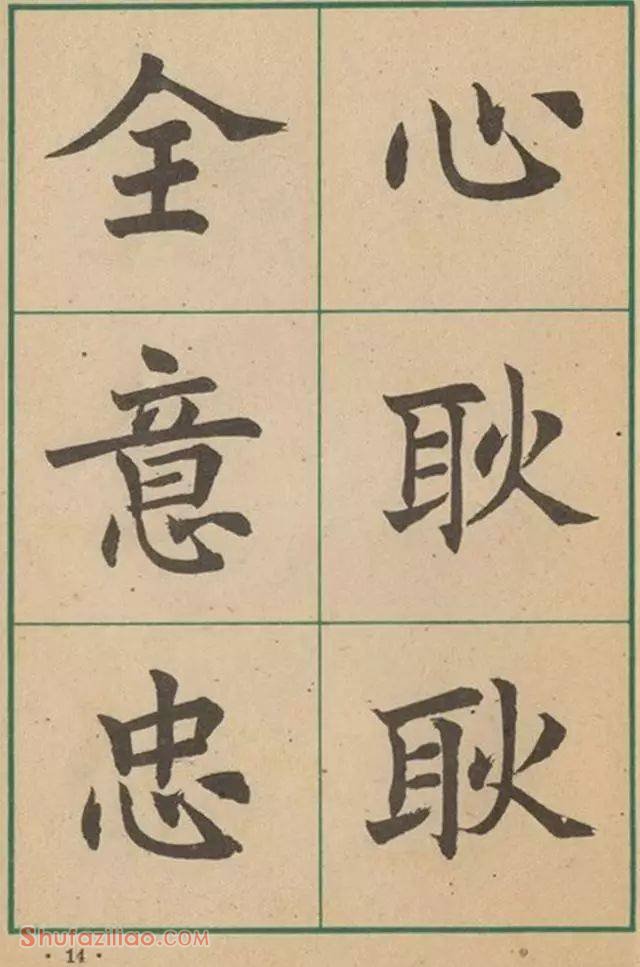 全意忠
心耿耿
· 14 ·
Shufaziliao.com